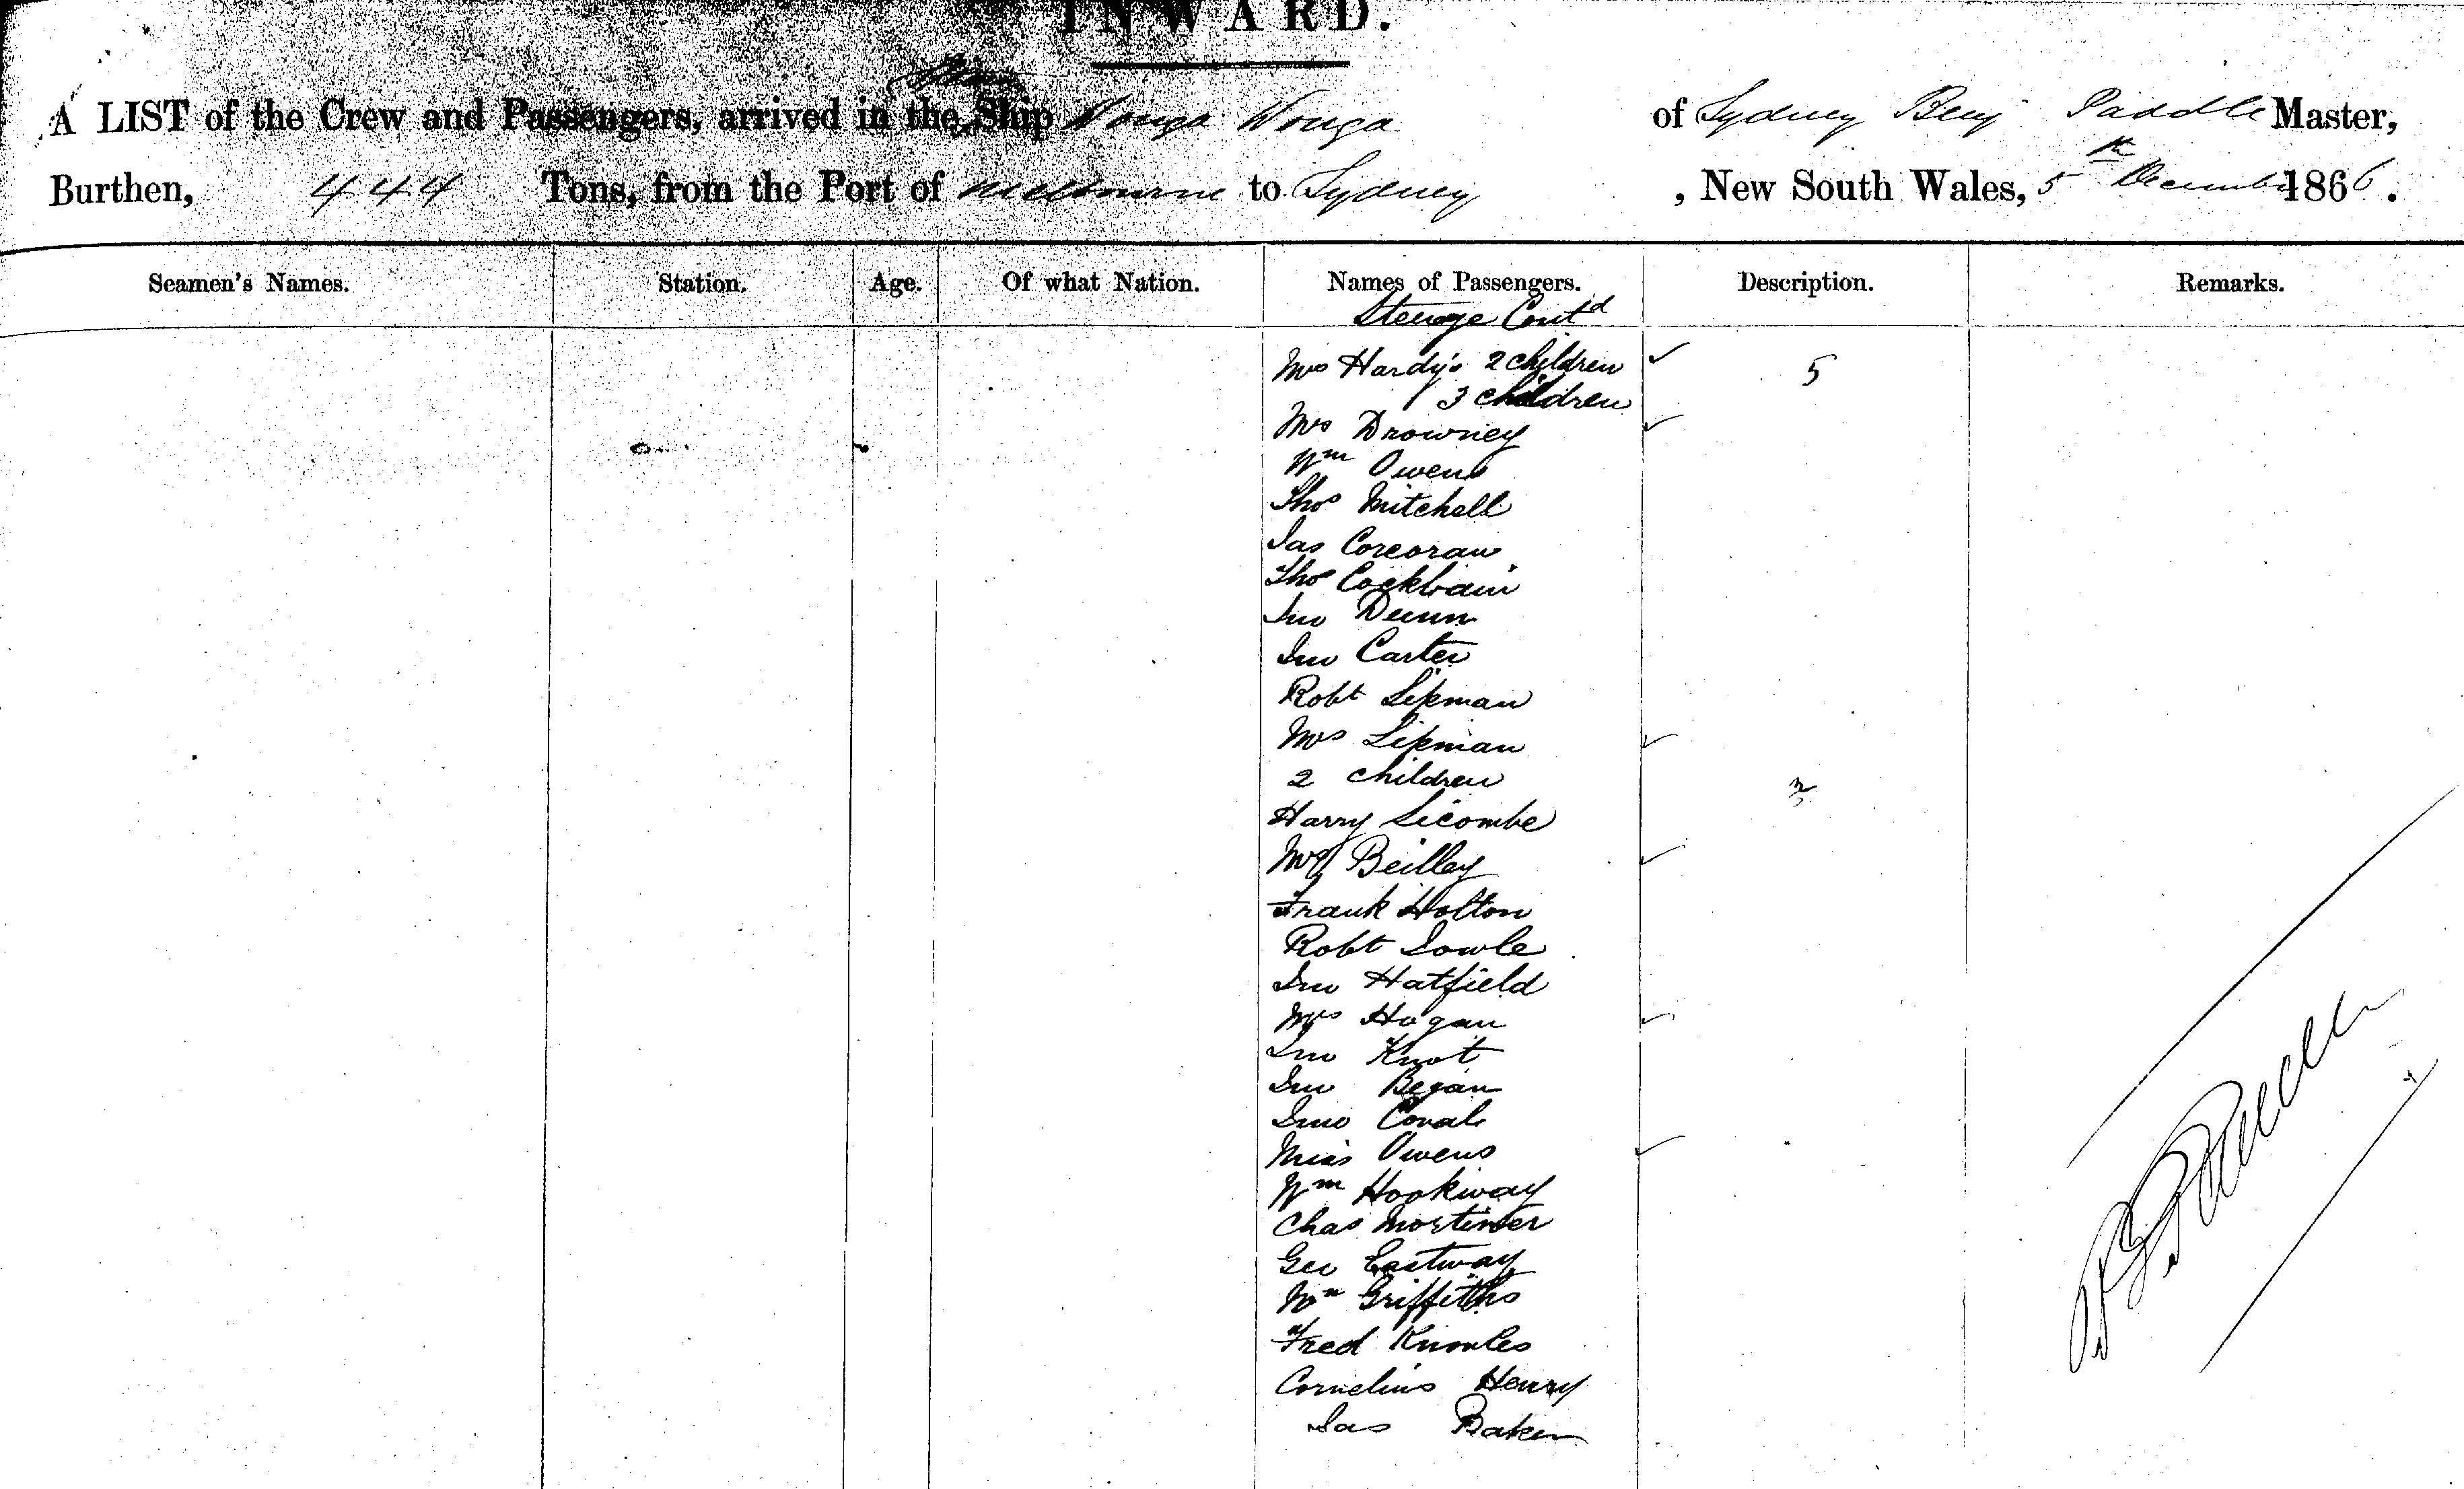 INWARD.
Steam
A LIST of the Crew and Passengers, arrived in the Ship Wonga Wonga of Sydney Benj Paddle Master,
Burthen, 444 Tons, from the Port of Melbourne to Sydney, New South Wales, 5th December 1866.
Seamen's Names. Station. Age. Of what Nation. Names of Passengers. Description. Remarks.
Steerage Contd
Mrs Hardy's 2 children 5
3 children
Mrs Drowney
Wm Owens
Thos Mitchell
Jas Corcoran
Thos Cockbain
Jno Dunn
Jno Carter
Robt Lipman
Mrs Lipman
2 children
Harry Licombe
Mrs Beilley
Frank Holton
Robt Sowle
Jno Hatfield
Mrs Hogan
Jno Knot
Jno Began
Jno
Miss Owens
Wm Hookway
Chas Mortimer
Geo Eastway
Wm Griffiths
Fred Knowles
Cornelius Henry
Jas Baker